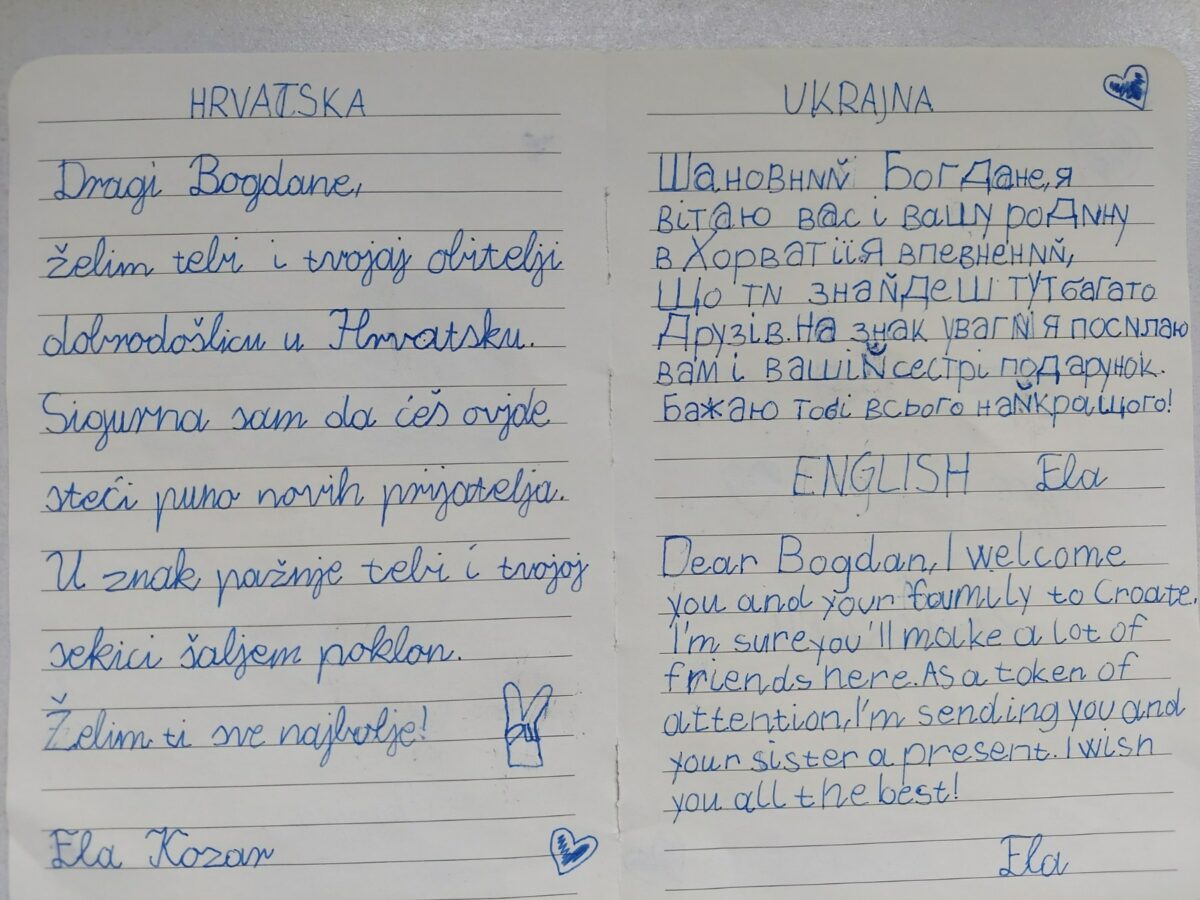 HRVATSKA
Dragi Bogdane,
želim tebi i tvojoj obitelji
dobrodošlicu u Hrvatsku.
Sigurna sam da ćeš ovjde
steći puno novih prijatelja.
U znak pažnje tebi i tvojoj
sekici šaljem poklon.
Želim ti sve najbolje!
Ela Kozar
UKRAJNA
Шановний Богдане, я
вітаю вас і вашу родину
в Хорватіїя впевнений,
Що ти знайдеш тут багато
Друзів. На знак уваги я посилаю
вам і вашій сестрі подарунок.
Бажаю тобі всього найкращого!
ENGLISH Ela
Dear Bogdan, I welcome
you and your family to Croate.
I'm sure you'll make a lot of
friends here. As a token of
attention, I'm sending you and
your sister a present. I wish
you all the best!
Ela